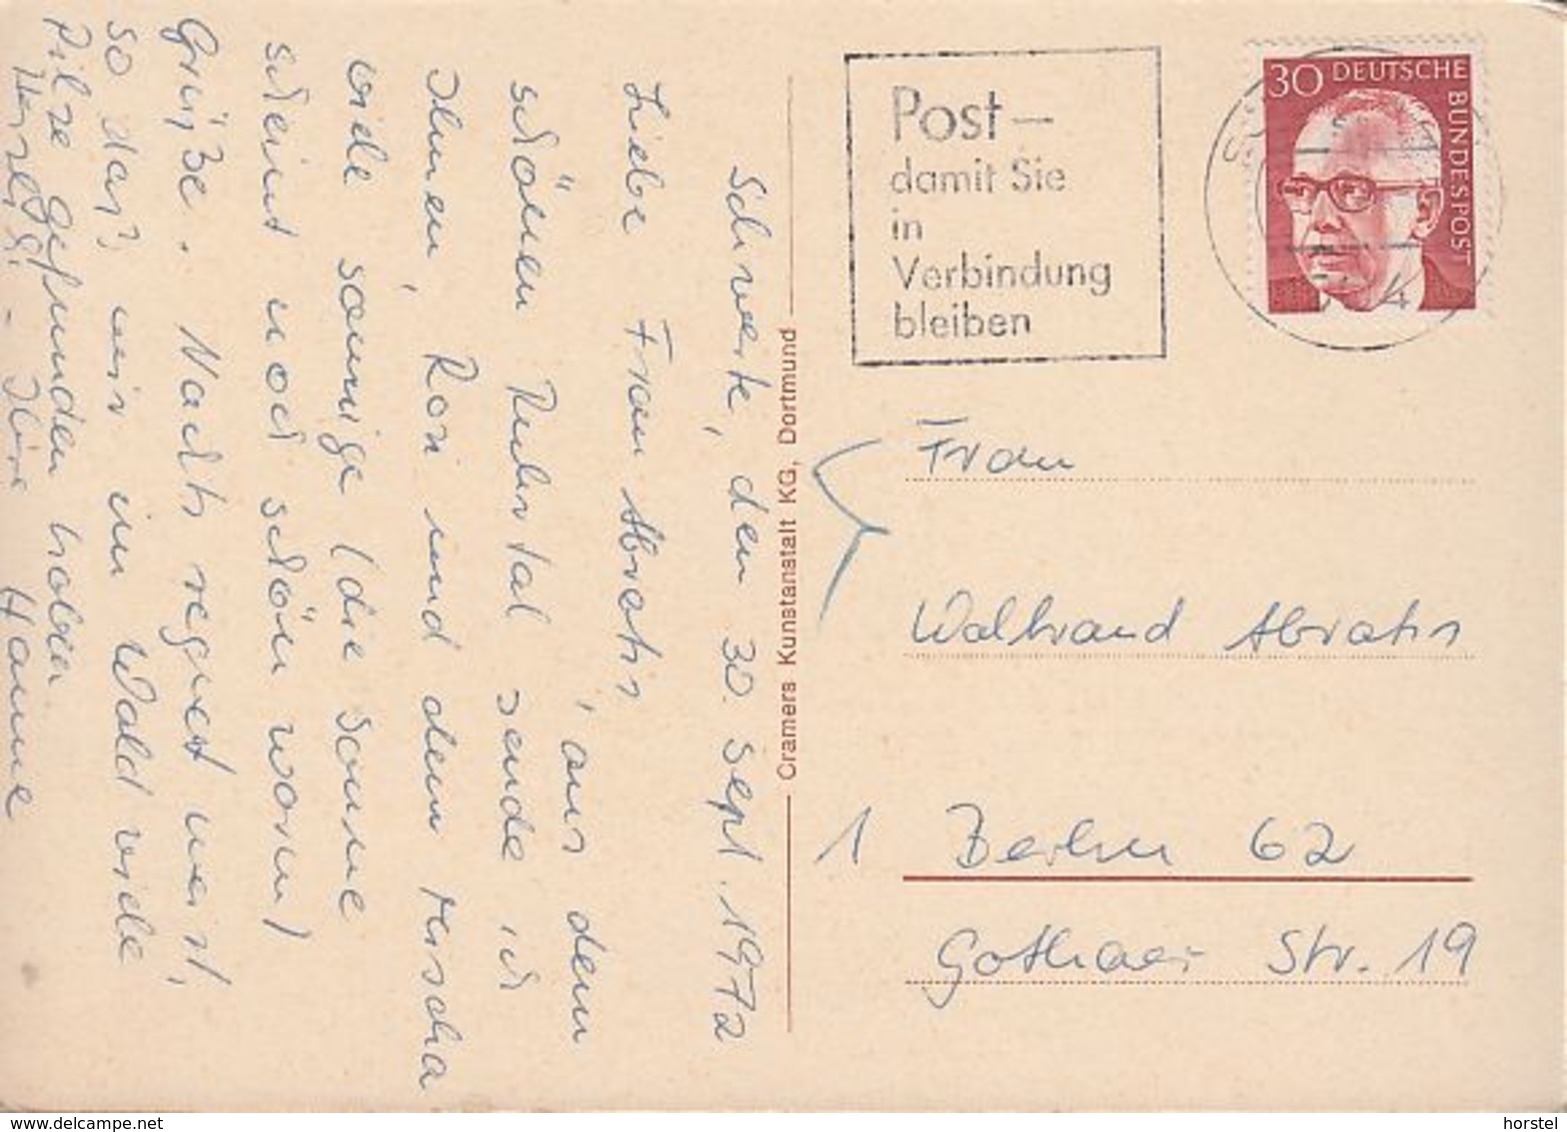 Schwerte, den 30. Sept. 1972
Liebe Frau Abrahs
, aus dem
schönen Ruhrtal sende ich
Ihnen, Rosi und dem Mischa
viele sonnige (die Sonne
scheint noch schön warm)
Grüße. Nachts regnet meist,
so daß wir im Wald viele
Pilze gefunden haben
Herzl. - Ihre Hanne
Cramers Kunstanstalt KG, Dortmund
Post –
damit Sie
in
Verbindung
bleiben
30 DEUTSCHE BUNDESPOST
Frau
Waltraud Abrahs
1 Berlin 62
Gothaer Str. 19
www.delcampe.net
horstel